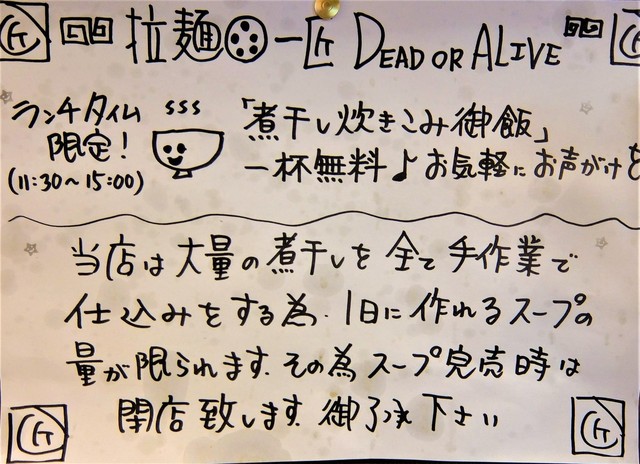 拉麺 一匠 DEAD OR ALIVE
ランチタイム
限定！
(11:30～15:00)
「煮干し炊きこみ御飯」
一杯無料♪お気軽にお声がけを
当店は大量の煮干しを全て手作業で
仕込みをする為、1日に作れるスープの
量が限られます。その為スープ完売時は
閉店致します。御了承下さい